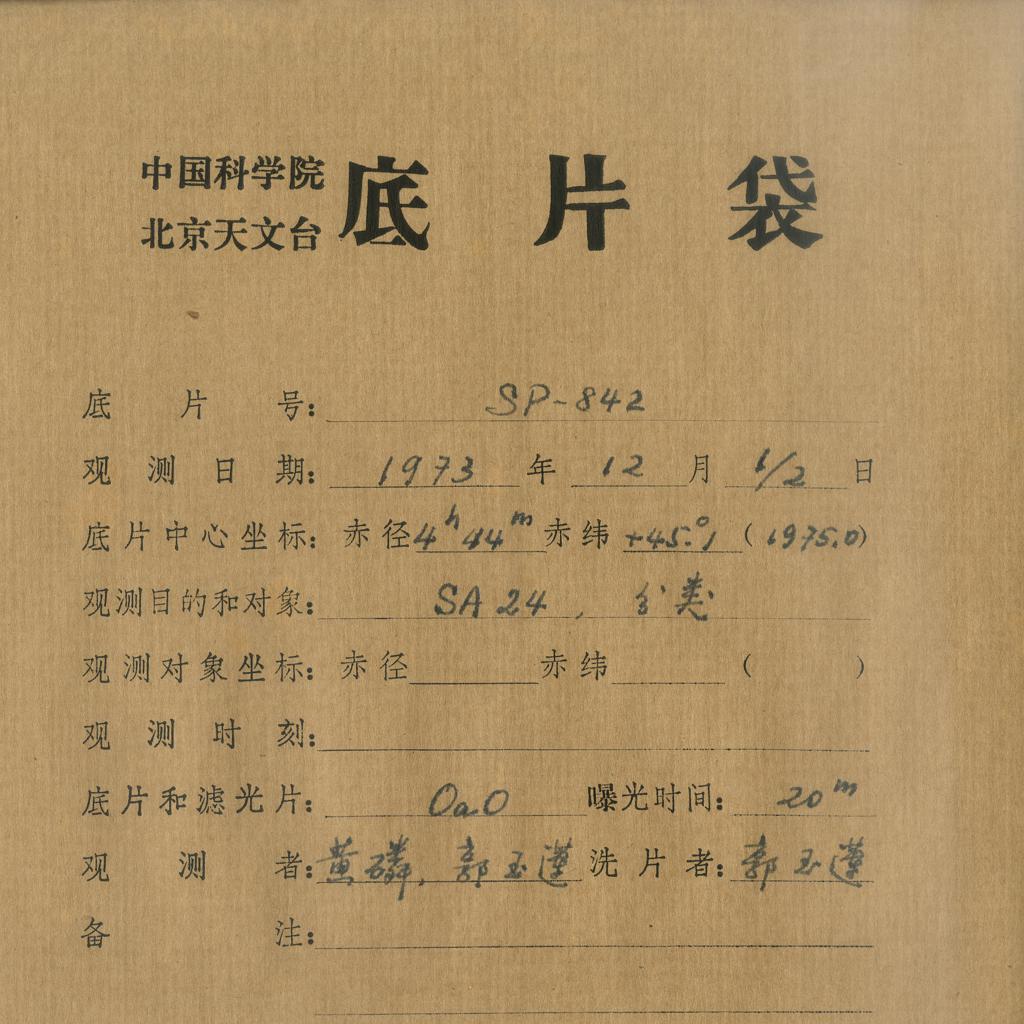 中国科学院
北京天文台
底片袋
底片号：SP-842
观测日期：1973年12月1/2日
底片中心坐标：赤径4h44m赤纬+45°.1(1975.0)
观测目的和对象：SA 24，分类
观测对象坐标：赤径 赤纬 ( )
观测时刻：
底片和滤光片：OaO 曝光时间：20m
观测者：黄磷，郭玉 洗片者：郭玉
备注：